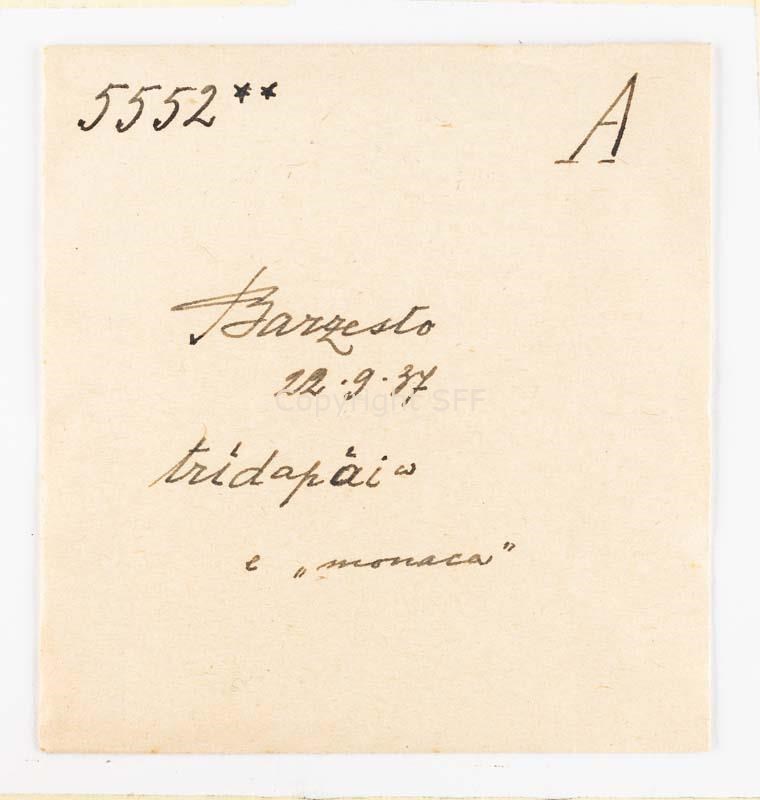 5552** A
Barzesto
22.9.37
Copyright SFF
trídapäi ω
e „monaca”